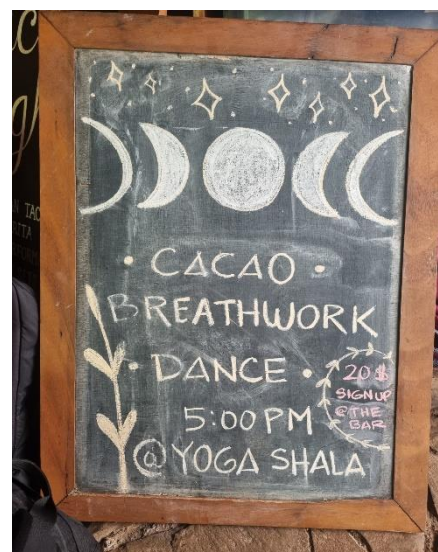 • CACAO •
BREATHWORK
• DANCE •
5:00 PM
@ YOGA SHALA
20$
SIGN UP
@ THE
BAR
TAC
RITA